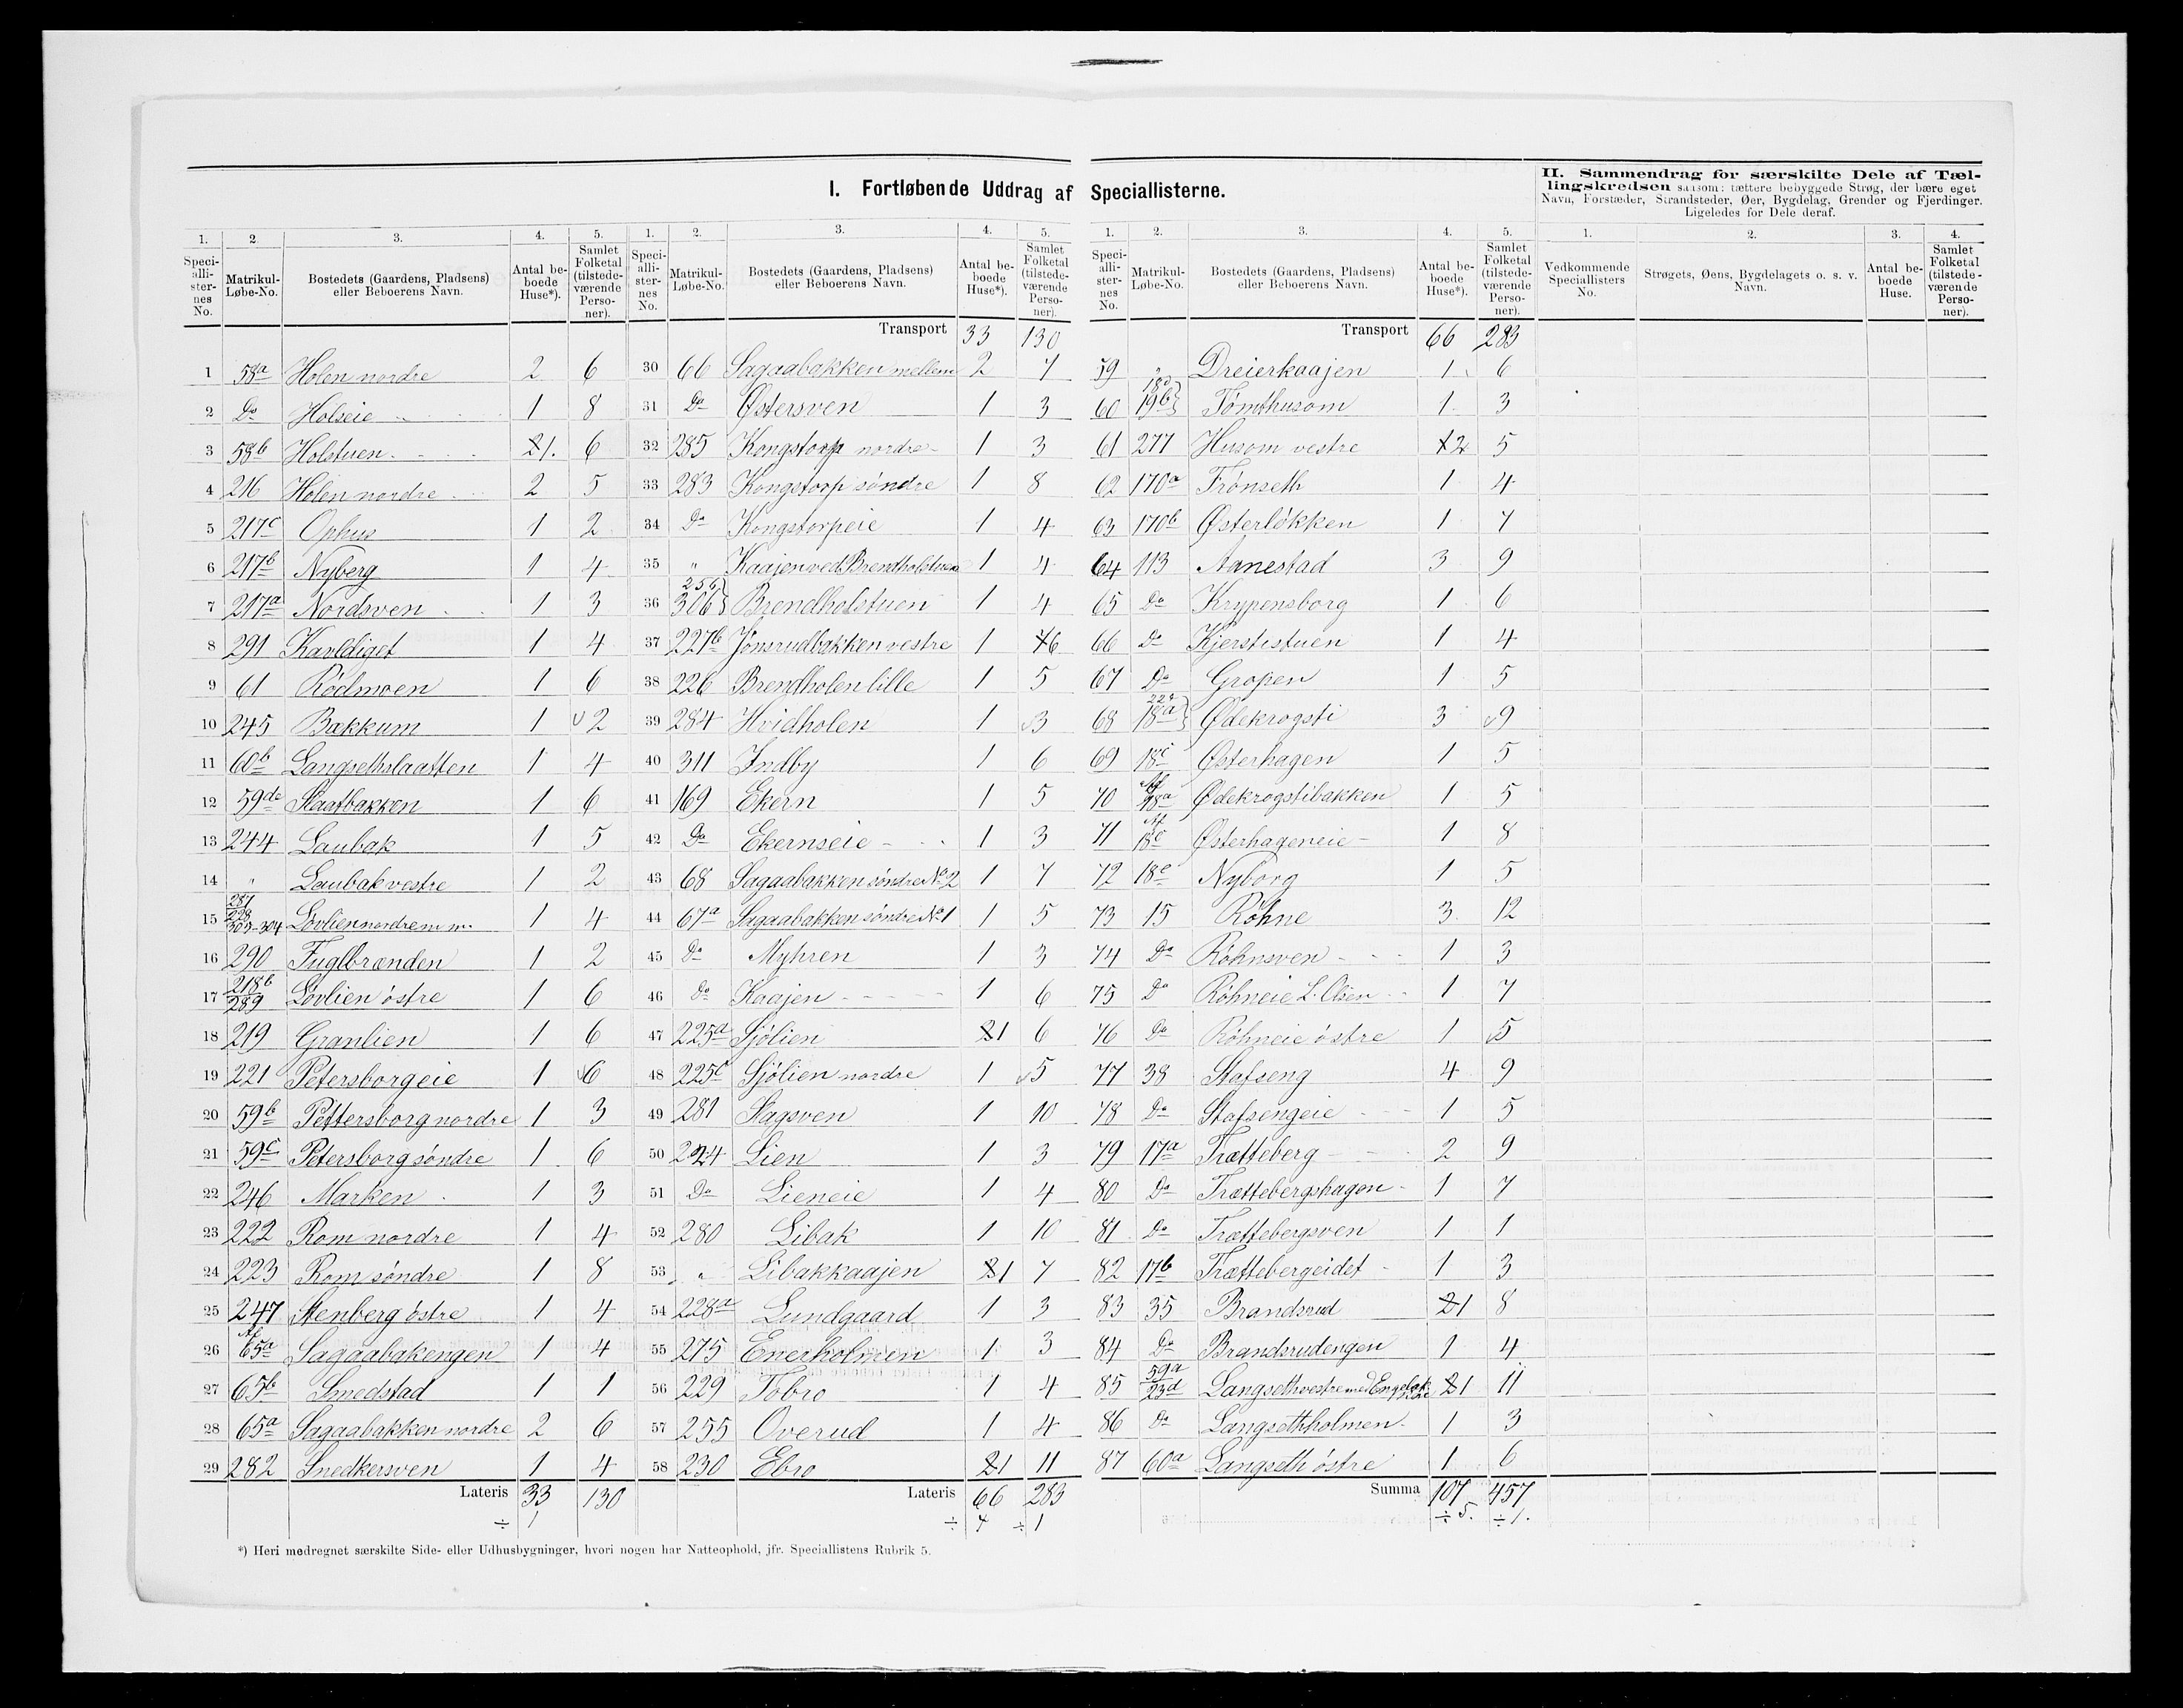 I. Fortløbende Uddrag af Speciallisterne.
II. Sammendrag for særskilte Dele af Tæl-
lingskredsen saasom: tættere bebyggede Strøg, der bære eget
Navn, Forstæder, Strandsteder, Øer, Bygdelag, Grender og Fjerdinger.
Ligeledes for Dele deraf.
1. 2. 3. 4. 5.
Speciallisternes No. Matrikul-Løbe-No. Bostedets (Gaardens, Pladsens) eller Beboerens Navn. Antal beboede Huse*). Samlet Folketal (tilstedeværende Personer).
1 58a Holen nordre 2 6
2 Do Holseie 1 8
3 58b Holstuen 21. 6
4 216 Holen nordre 2 5
5 217c Ophus 1 2
6 217b Nyberg 1 4
7 217a Nordsven 1 3
8 291 Kavldiget 1 4
9 61 Rödmoen 1 6
10 245 Bækkum 1 2
11 60b Langsethslaatten 1 4
12 59de Slaatbakken 1 6
13 244 Laubak 1 5
14 " Laubak vestre 1 2
15 287 228 303-304 Lövlien nordre m m. 1 4
16 290 Fuglbrænden 1 2
17 218b 289 Lövlien östre 1 6
18 219 Granlien 1 6
19 221 Petersborgeie 1 6
20 59b Pettersborg nordre 1 3
21 59c Petersborg söndre 1 6
22 246 Marken 1 3
23 222 Rom nordre 1 4
24 223 Rom söndre 1 8
25 247 Stenberg östre 1 4
26 Af 65a Sagaabakengen 1 4
27 65b Smedstad 1 1
28 65a Sagaabakken nordre 2 6
29 282 Snedkersven 1 4
Lateris 33 130
÷ 1
1. 2. 3. 4. 5.
Speciallisternes No. Matrikul-Løbe-No. Bostedets (Gaardens, Pladsens) eller Beboerens Navn. Antal beboede Huse*). Samlet Folketal (tilstedeværende Personer).
Transport 33 130
30 66 Sagaabakken mellem 2 7
31 Do Østersven 1 3
32 285 Kongstorp nordre 1 3
33 283 Kongstorp söndre 1 8
34 Do Kongstorpeie 1 4
35 " Kaajen ved Brendholstuen 1 4
36 256 306 Brendholstuen 1 4
37 227b Jönsrudbakken vestre 1 6
38 226 Brendholen lille 1 5
39 284 Hvidholen 1 3
40 311 Indby 1 6
41 169 Ekern 1 5
42 Do Ekernseie 1 3
43 68 Sagaabakken söndre No 2 1 7
44 67a Sagaabakken söndre No 1 1 5
45 Do Myhren 1 3
46 Do Kaajen 1 6
47 225a Sjölien 21 6
48 225c Sjölien nordre 1 5
49 281 Slagsven 1 10
50 224 Lien 1 3
51 Do Lieneie 1 4
52 280 Libak 1 10
53 " Libakkaajen 21 7
54 228a Lundgaard 1 3
55 275 Enerholmen 1 3
56 229 Tobro 1 4
57 255 Overud 1 4
58 230 Ebro 21 11
Lateris 66 283
÷ 4 ÷ 1
1. 2. 3. 4. 5.
Speciallisternes No. Matrikul-Løbe-No. Bostedets (Gaardens, Pladsens) eller Beboerens Navn. Antal beboede Huse*). Samlet Folketal (tilstedeværende Personer).
Transport 66 283
59 " Dreierkaajen 1 6
60 18d 19b Tömthusom 1 3
61 277 Husom vestre 12 5
62 170a Frönseth 1 4
63 170b Østerlökken 1 7
64 113 Aanestad 3 9
65 Do Krypensborg 1 6
66 Do Kjerstistuen 1 4
67 Do Gropen 1 5
68 224 18a Ødekrogsti 3 9
69 18c Østerhagen 1 5
70 Af 18a Ødekrogstibakken 1 5
71 Af 18c Østerhageneie 1 8
72 18e Nyborg 1 5
73 15 Röhne 3 12
74 Do Röhnsven 1 3
75 Do Röhneie L. Olsen 1 7
76 Do Röhneie östre 1 5
77 38 Stafseng 4 9
78 Do Stafsengeie 1 5
79 17a Trætteberg 2 9
80 Do Trættebergshagen 1 7
81 Do Trættebergsven 1 1
82 17b Trættebergeidet 1 3
83 35 Brandsrud 21 8
84 Do Brandsrudengen 1 4
85 59a 23d Langseth vestre med Engebak 21 11
86 Do Langsethholmen 1 3
87 60a Langseth östre 1 6
Summa 107 457
÷ 5. ÷ 1.
1. 2. 3. 4.
Vedkommende Speciallisters No. Strøgets, Øens, Bygdelagets o. s. v. Navn. Antal beboede Huse. Samlet Folketal (tilstedeværende Personer).
*) Heri medregnet særskilte Side- eller Udhusbygninger, hvori nogen har Natteophold, jfr. Speciallistens Rubrik 5.